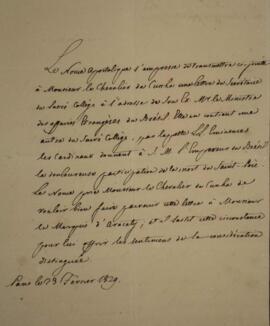 Le Nonce Apostolique s'empresse de transmettre ci-joint
à Monsieur le Chevalier da Cunha une lettre du Secrétaire
du Sacré Collège à l'adresse de Son Ex. Mr. le Ministre
des affaires Etrangères du Brésil. Elle en contient une
autre du Sacré Collège, par laquelle LL. Eminences
les Cardinaux donnent à S. M. l'Empereur du Brésil
la douloureuse participation de la mort du Saint-Père
Le Nonce prie Monsieur le Chevalier da Cunha de
vouloir bien faire parvenir cette lettre à Monsieur
le Marquis d'Aracaty, et il saisit cette circonstance
pour lui offrir les sentimens de la considération
distinguée.
Paris le 23 Février 1829.